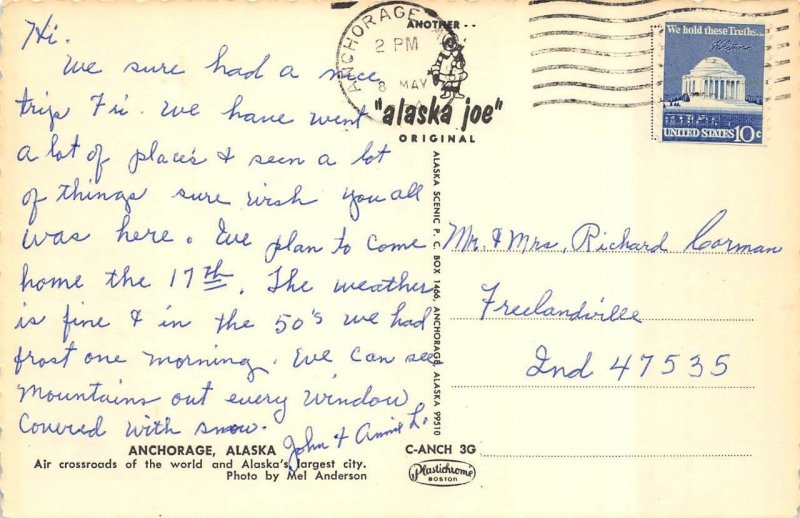 Hi.
We sure had a nice
trip Fri. We have went
a lot of places & seen a lot
of things sure wish you all
was here. We plan to come
home the 17th. The weather
is fine & in the 50's we had
frost one morning. We can see
Mountains out every window
Covered with snow.
John & Annie L.
ANCHORAGE, ALASKA
Air crossroads of the world and Alaska's largest city.
Photo by Mel Anderson
ANCHORAGE
2 PM
8 MAY
ANOTHER - -
"alaska joe"
ORIGINAL
ALASKA SCENIC P. C. BOX 1466, ANCHORAGE, ALASKA 99510
C-ANCH 3G
Plastichrome
BOSTON
We hold these Truths...
UNITED STATES 10c
Mr. & Mrs. Richard Corman
Freelandville
Ind 47535